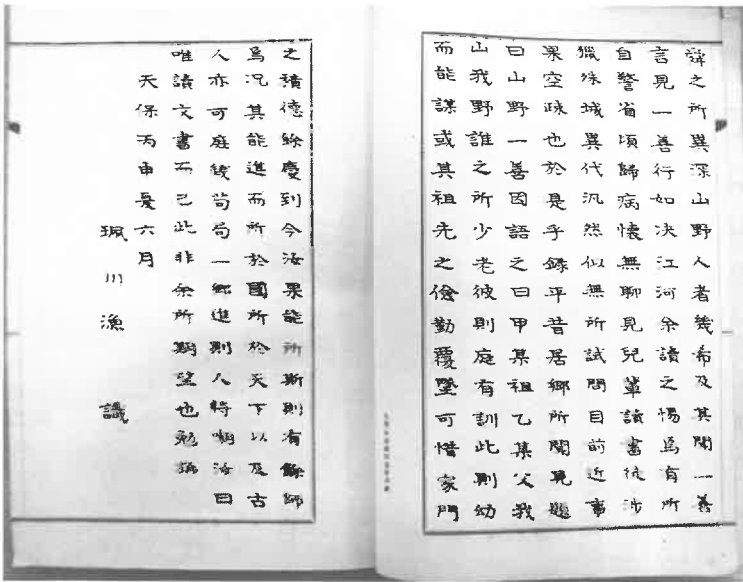 舜之所異深山野人者幾希及其聞一善
言見一善行如决江河余讀之惕焉有所
自警省頃歸病懷無聊見兒輩讀書徒涉
獵殊域異代汎然似無所試問目前近事
果空疎也於是乎錄平昔居鄉所聞見題
曰山野一善因語之曰甲某祖乙某父我
山我野誰之所少老彼則庭有訓此則幼
而能謀或其祖先之儉勤覆墜可惜家門
之積德餘慶到今汝果能所斯則有餘師
焉况其能進而所於國所於天下以及古
人亦可庭幾苟局一鄉進則人將嘲汝曰
唯讀文書而已此非余所期望也勉旃
天保丙申夏六月
珮川漁 識